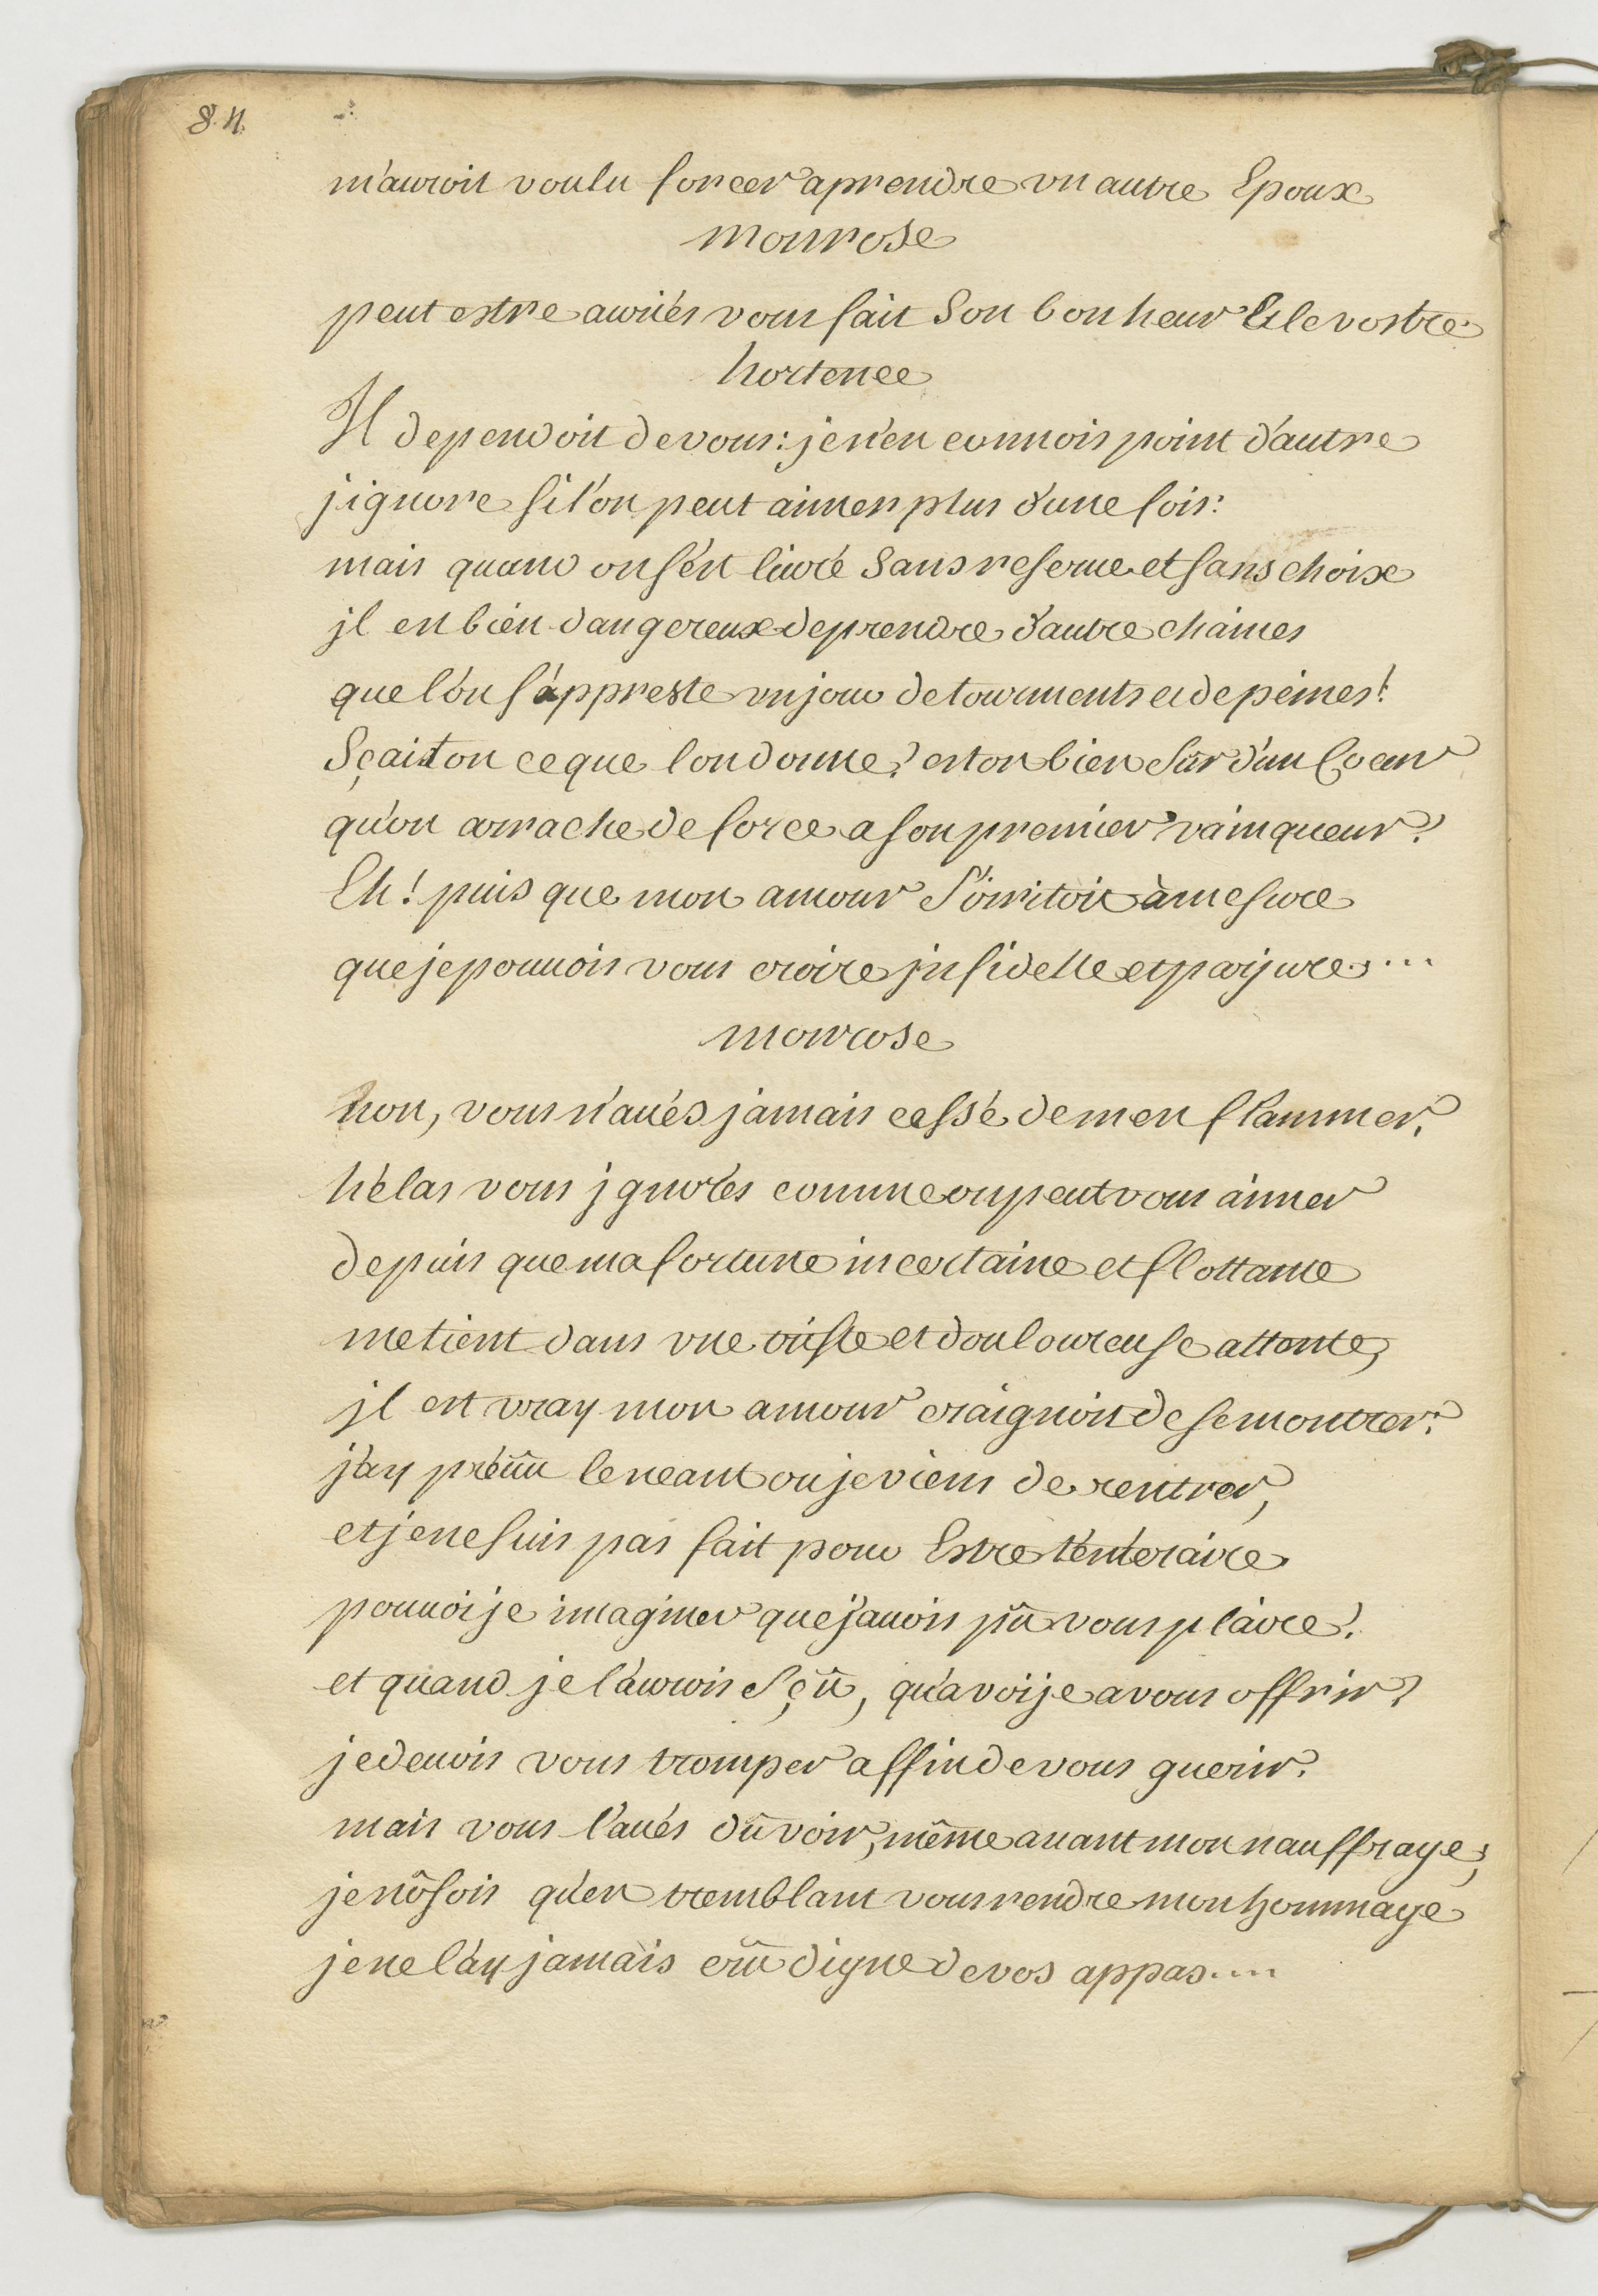 84.
m'auroit voulu forcer aprendre vn autre Epoux
monrose
peut estre auriés vous fait Son bonheur Et le vostre
hortence
Il dependoit de vous: je n'en connois point d'autre
j'ignore si l'on peut aimer plus d'une fois:
mais quand on s'est liuré Sans reserue et sans choix
jl est bien dangereux de prendre d'autre chaines
que l'on s'appreste vn jour de tourments et de peines!
Sçait on ce que l'on donne? est on bien Sûr d'un Coeur
qu'on arrache de force a son premier vainqueur?
Eh! puis que mon amour S'irritoit à mesure
que je pouuois vous croire jnfidelle et parjure....
monrose
non, vous n'aués jamais cessé de men flammer,
hélas vous jgnorés comme on peut vous aimer
depuis que ma fortune incertaine et flottante
me tient dans vne triste et douloureuse attente,
jl est vray mon amour craignoit de se montrer:
j'ay préuû le neant ou je viens de rentrer,
et je ne suis pas fait pour Estre téméraire
pouuoije imaginer que j'auois pû vous plaire?
et quand je l'aurois Sçû, qu'avoije a vous offrir?
je deuois vous tromper affin de vous guerir.
mais vous l'aués dû voir, même auant mon nauffrage,
je nôsois qu'en tremblant vous rendre mon hommage
je ne l'ay jamais crû digne de vos appas....